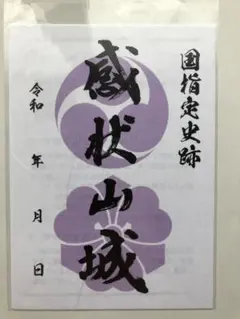 国指定史跡
感状山城
令和 年 月 日